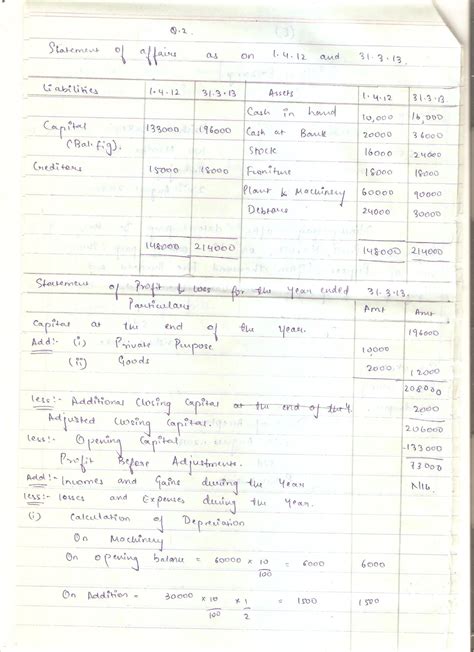 Q.2.
Statement of affairs as on 1.4.12 and 31.3.13.
Liabilities 1.4.12 31.3.13 Assets 1.4.12 31.3.13
Cash in hand 10,000 16,000
Capital 133000 196000 Cash at Bank 20000 36000
(Bal. fig). Stock 16000 24000
Creditors 15000 18000 Furniture 18000 18000
Plant & Machinery 60000 90000
Debtors 24000 30000
148000 214000 148000 214000
Statement of Profit & Loss for the Year ended 31.3.13.
Particulars Amt Amt
Capital at the end of the Year. 196000
Add:- (i) Private Purpose 10000
(ii) Goods 2000 12000
208000
less:- Additional Closing Capital at the end of the 2000
Adjusted Closing Capital. 206000
less:- Opening Capital -133000
Profit Before Adjustments. 73000
Add:- Incomes and Gains during the Year Nil.
less:- losses and Expenses during the Year.
(i) Calculation of Depreciation
On Machinery
On opening balance = 60000 × 10/100 = 6000 6000
On Addition = 30000 × 10/100 × 1/2 = 1500 1500